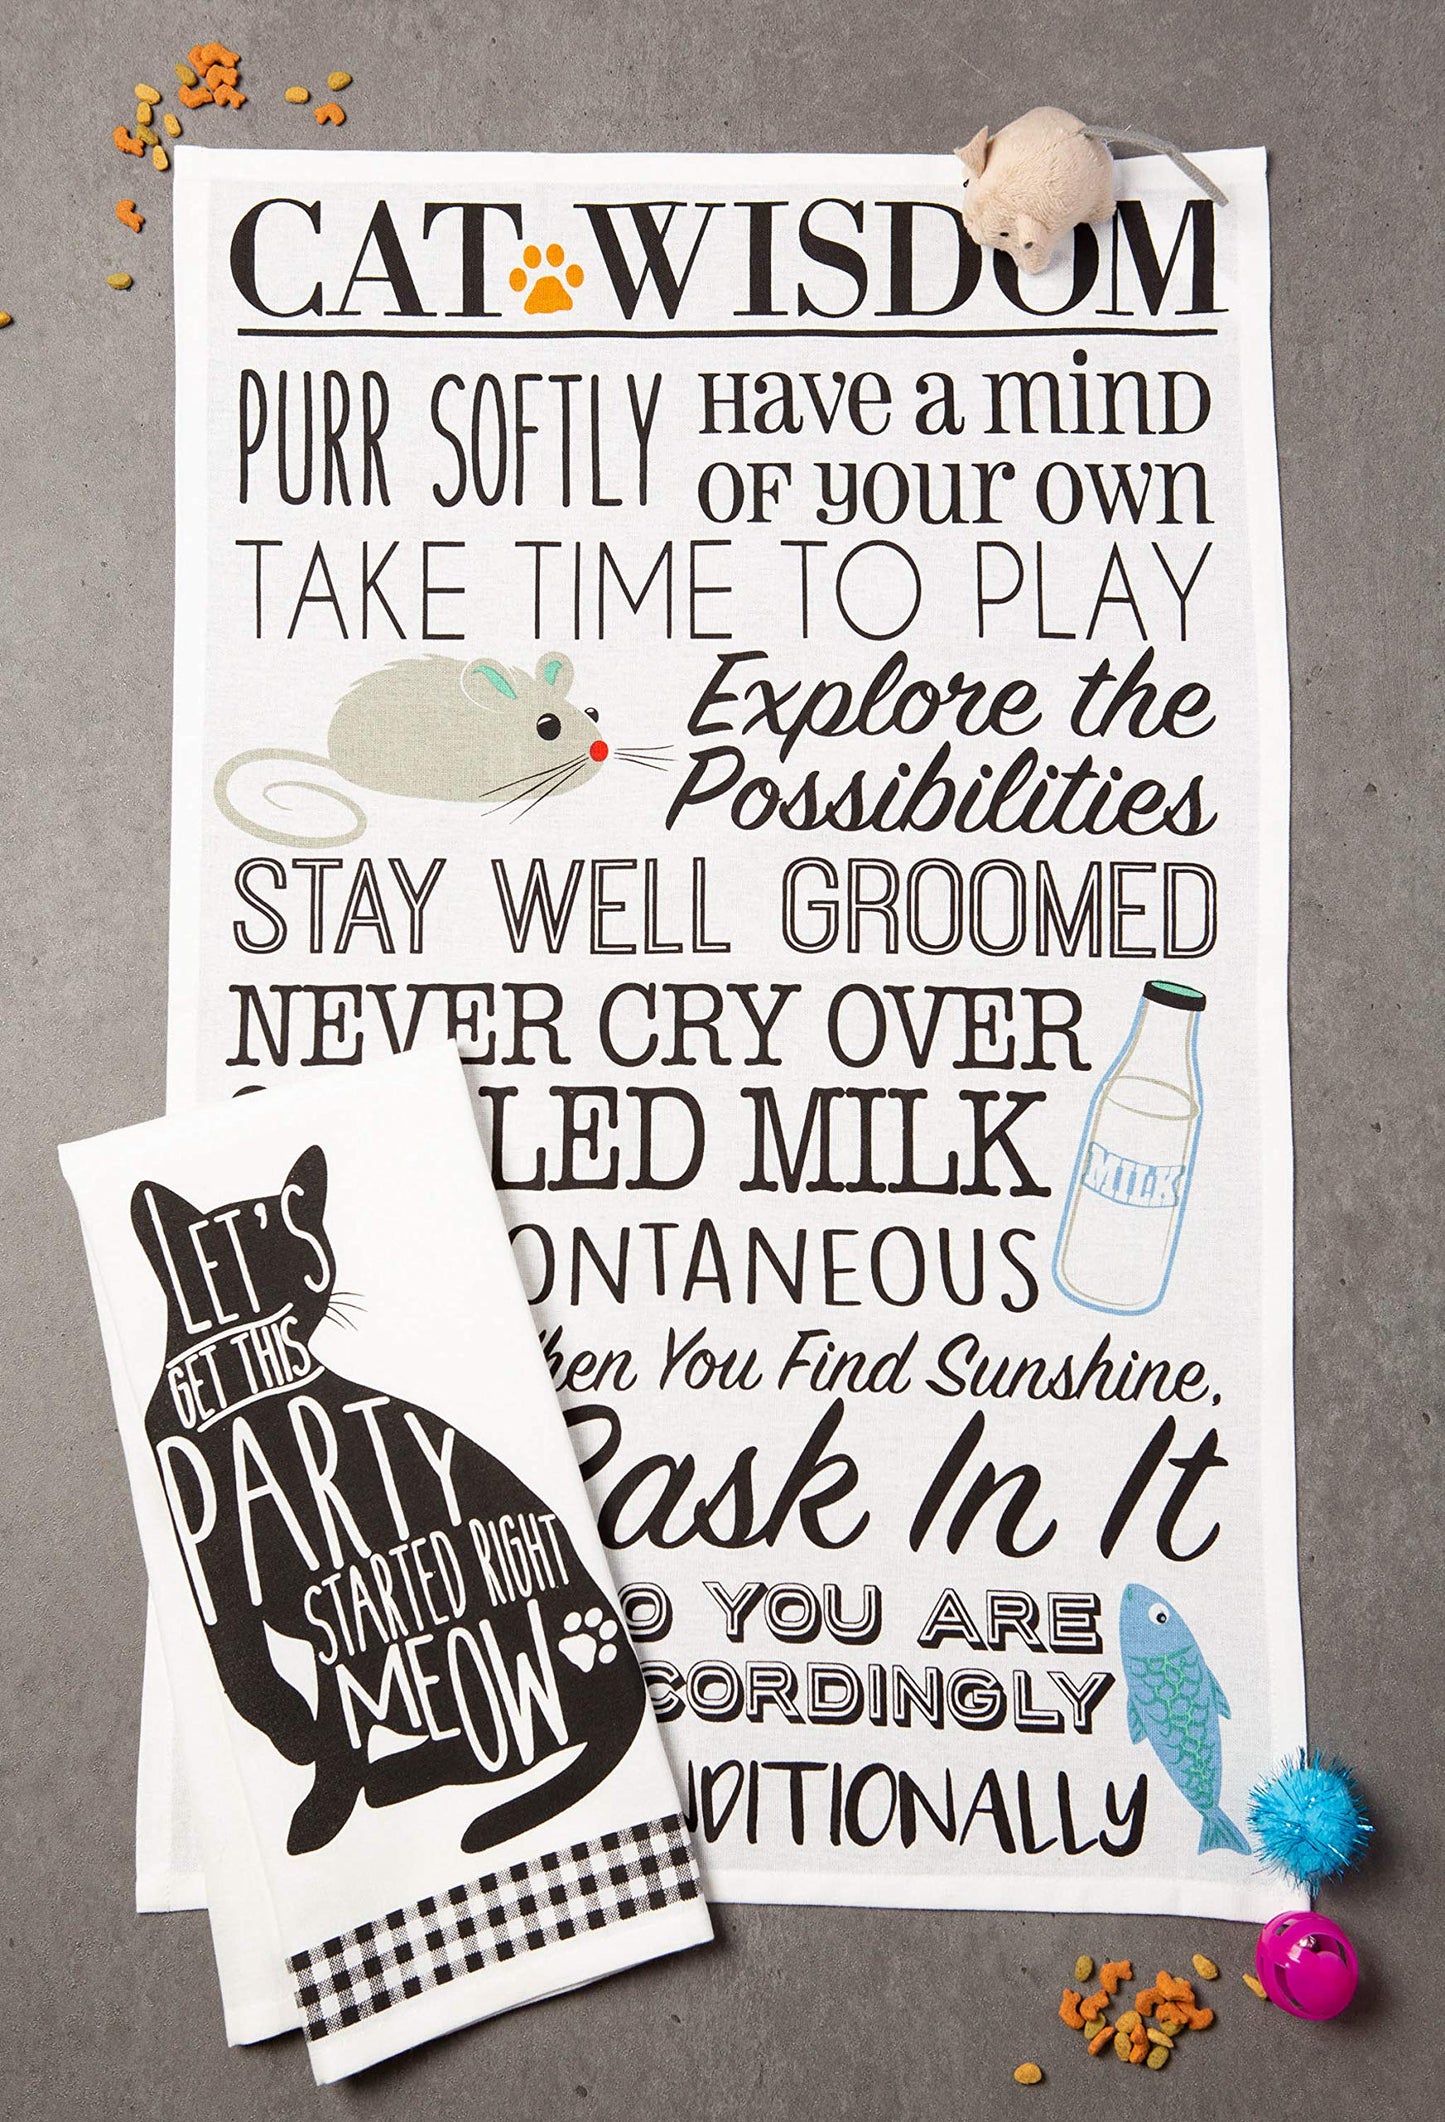 CAT WISDOM
PURR SOFTLY
Have a mind
of your own
TAKE TIME TO PLAY
Explore the
Possibilities
STAY WELL GROOMED
NEVER CRY OVER
LED MILK
MILK
ONTANEOUS
hen You Find Sunshine,
Bask In It
O YOU ARE
CORDINGLY
NDITIONALLY
LET'S
GET THIS
PARTY
STARTED RIGHT
MEOW